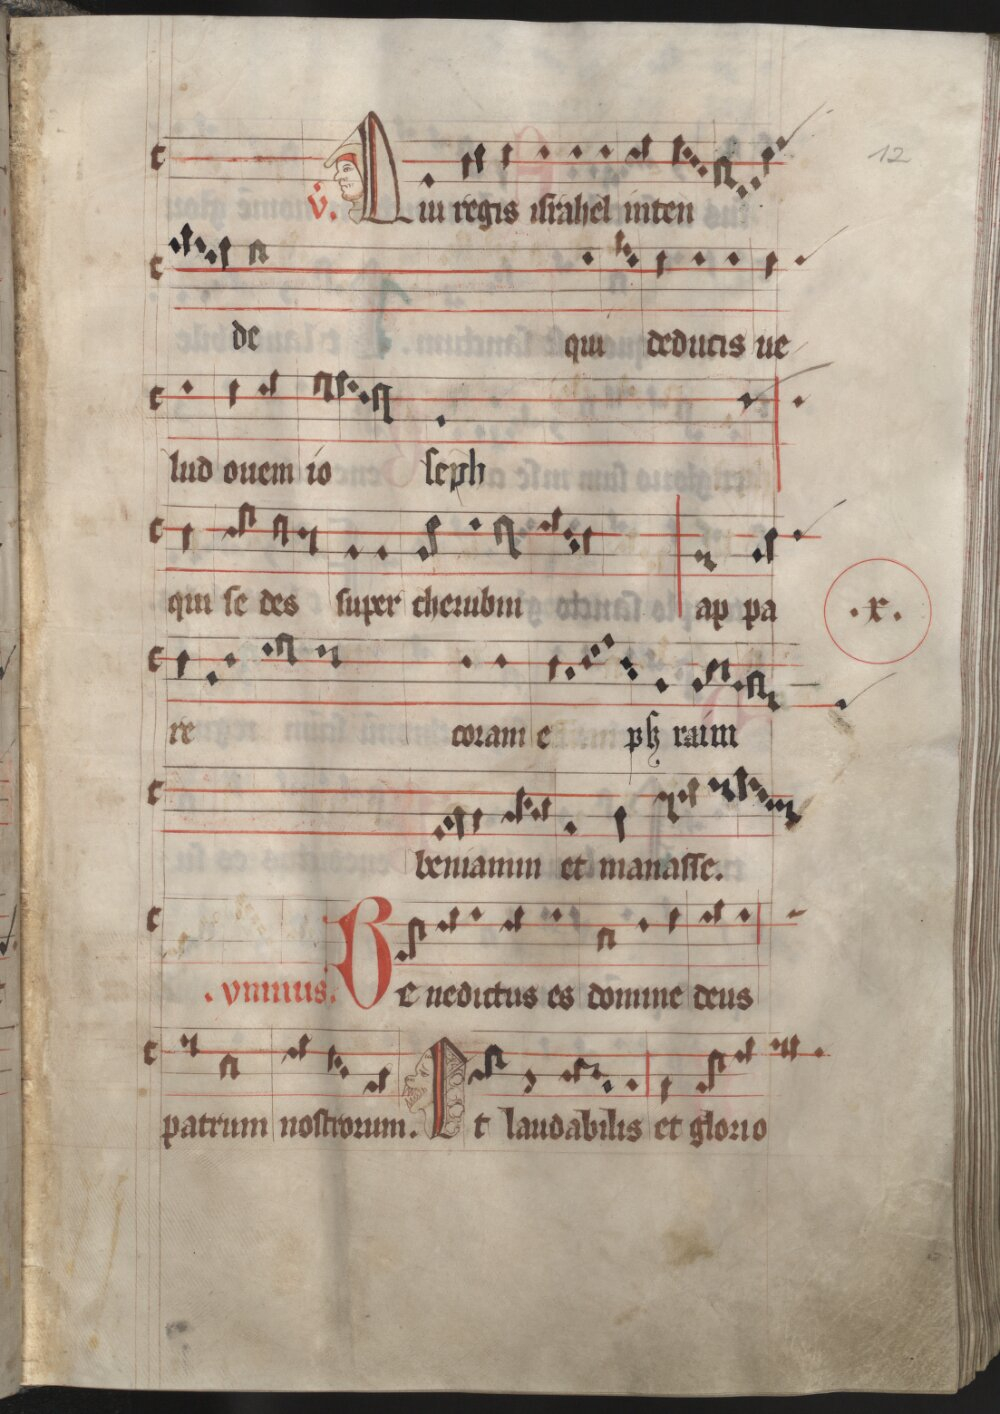 12
v̄. Qui regis israhel inten
de qui deducis ue
lud ouem io seph
qui se des super cherubin ap pa
.x.
re coram e ph raim
beniamin et manasse.
.ymnus. Be nedictus es domine deus
patrum nostrorum. Et laudabilis et glorio